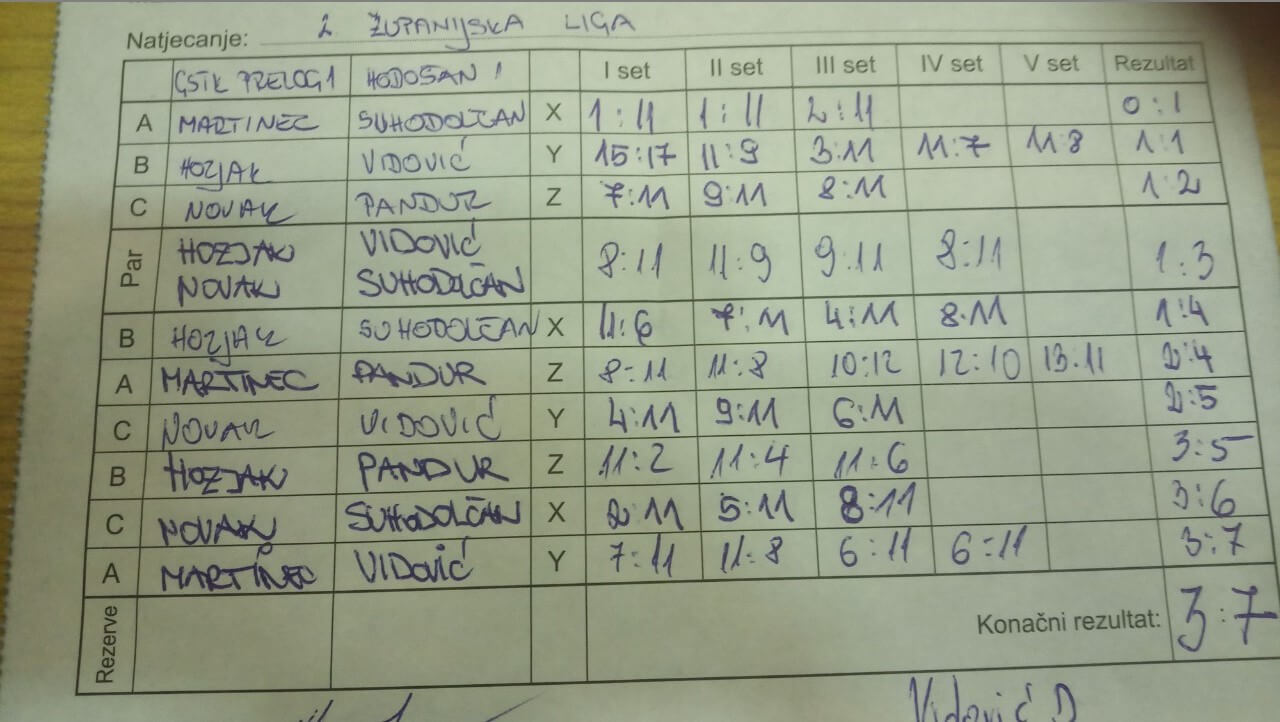 Natjecanje: 2 ŽUPANIJSKA LIGA
GSTK PRELOG 1 HODOŠAN 1 I set II set III set IV set V set Rezultat
A MARTINEC SUHODOLČAN X 1:11 1:11 2:11 0:1
B HOZJAK VIDOVIĆ Y 15:17 11:9 3:11 11:7 11:8 1:1
C NOVAK PANDUR Z 7:11 9:11 8:11 1:2
Par HOZJAK VIDOVIĆ 8:11 11:9 9:11 8:11 1:3
NOVAK SUHODOLČAN
B HOZJAK SUHODOLČAN X 11:6 7:11 4:11 8:11 1:4
A MARTINEC PANDUR Z 8:11 11:8 10:12 12:10 13:11 2:4
C NOVAK VIDOVIĆ Y 4:11 9:11 6:11 2:5
B HOZJAK PANDUR Z 11:2 11:4 11:6 3:5
C NOVAK SUHODOLČAN X 2:11 5:11 8:11 3:6
A MARTINEC VIDOVIĆ Y 7:11 11:8 6:11 6:11 3:7
Rezerve Konačni rezultat: 3:7
Vidović D